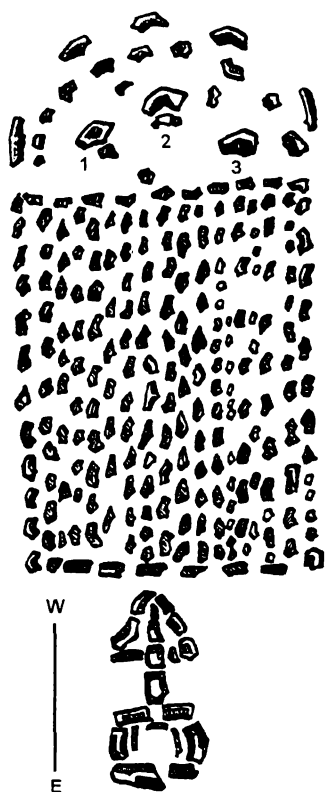 1
2
3
W
E